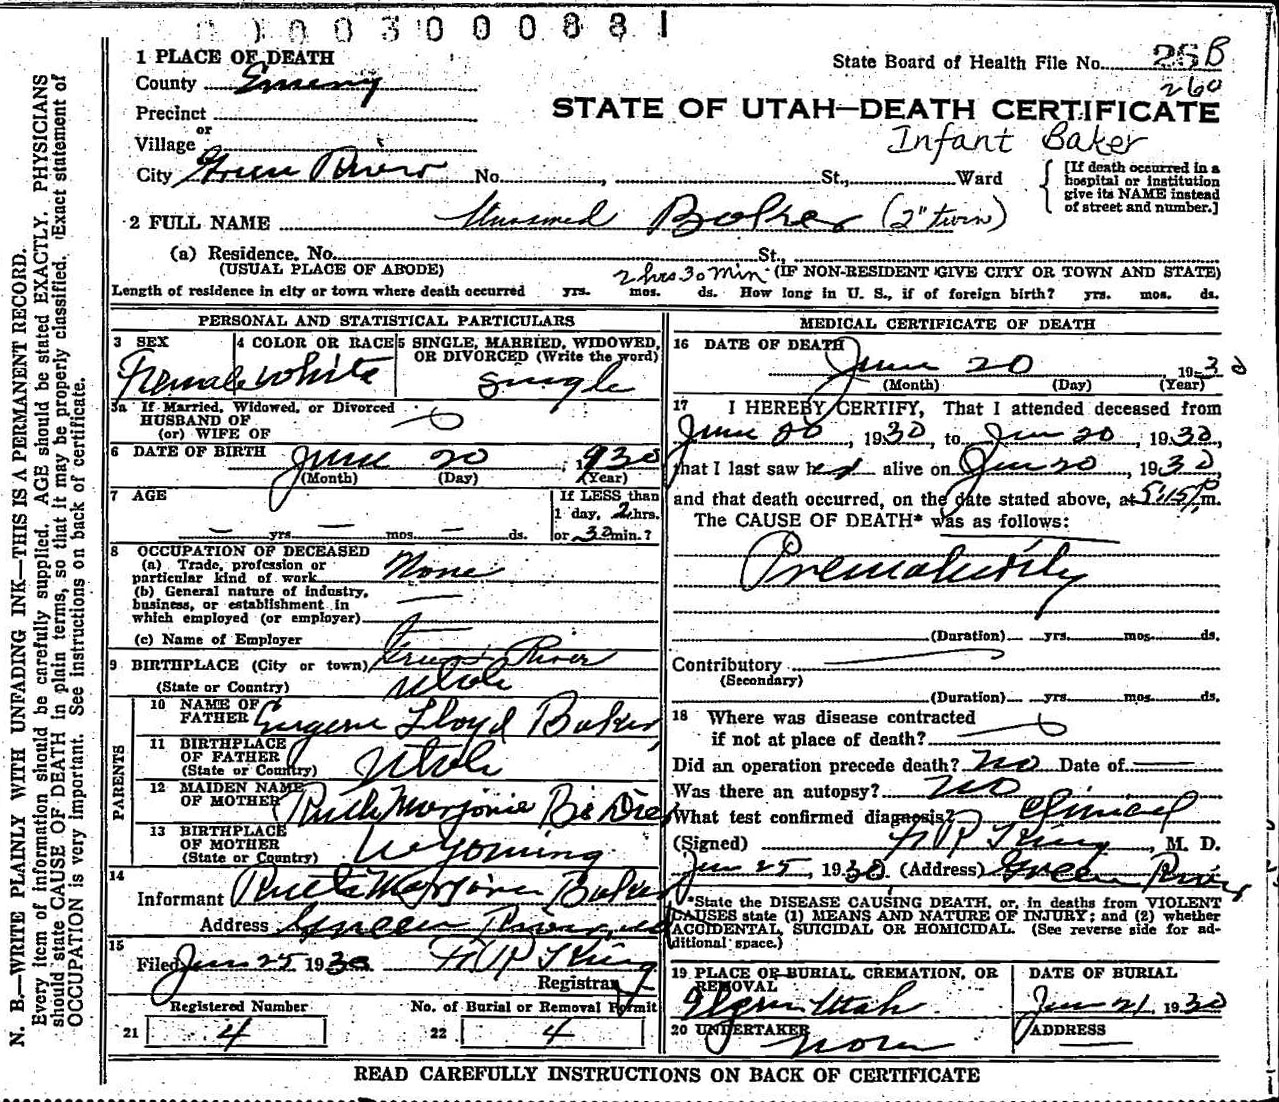 0 0 0 3 0 0 0 8 8 1
1 PLACE OF DEATH
County Emery
State Board of Health File No. 25 B
260
Precinct
or
Village
STATE OF UTAH—DEATH CERTIFICATE
Infant Baker
City Green River No. , St., Ward
[If death occurred in a
hospital or institution
give its NAME instead
of street and number.]
2 FULL NAME Unnamed Baker (2" twin)
(a) Residence. No. St.,
(USUAL PLACE OF ABODE) 2 hrs 30 min (IF NON-RESIDENT GIVE CITY OR TOWN AND STATE)
Length of residence in city or town where death occurred yrs. mos. ds. How long in U. S., if of foreign birth? yrs. mos. ds.
PERSONAL AND STATISTICAL PARTICULARS
3 SEX
Female
4 COLOR OR RACE
White
5 SINGLE, MARRIED, WIDOWED,
OR DIVORCED (Write the word)
Single
3a If Married, Widowed, or Divorced
HUSBAND OF
(or) WIFE OF
6 DATE OF BIRTH June 20, 1930
(Month) (Day) (Year)
7 AGE
— yrs. — mos. — ds.
If LESS than
1 day, 2 hrs.
or 30 min.?
8 OCCUPATION OF DECEASED
(a) Trade, profession or
particular kind of work None
(b) General nature of industry,
business, or establishment in
which employed (or employer)
(c) Name of Employer
9 BIRTHPLACE (City or town) Green River
(State or Country) Utah
PARENTS
10 NAME OF
FATHER Eugene Lloyd Baker
11 BIRTHPLACE
OF FATHER
(State or Country) Utah
12 MAIDEN NAME
OF MOTHER Ruth Marjorie
13 BIRTHPLACE
OF MOTHER
(State or Country) Wyoming
14
Informant Ruth Marjorie Baker
Address Green River,
15
Filed Jun 25 1930
Registrar
Registered Number
21 4
No. of Burial or Removal Permit
22 4
MEDICAL CERTIFICATE OF DEATH
16 DATE OF DEATH
June 20, 1930
(Month) (Day) (Year)
17 I HEREBY CERTIFY, That I attended deceased from
June 20, 1930, to Jun 20, 1930,
that I last saw h alive on Jun 20, 1930
and that death occurred, on the date stated above, at 5:15 P. m.
The CAUSE OF DEATH* was as follows:
Prematurity
(Duration) yrs. mos. ds.
Contributory
(Secondary)
(Duration) yrs. mos. ds.
18 Where was disease contracted
if not at place of death?
Did an operation precede death? No Date of —
Was there an autopsy? No
What test confirmed diagnosis? Clinical
(Signed) King, M. D.
Jun 25, 1930. (Address) Green River
*State the DISEASE CAUSING DEATH, or, in deaths from VIOLENT
CAUSES state (1) MEANS AND NATURE OF INJURY; and (2) whether
ACCIDENTAL, SUICIDAL OR HOMICIDAL. (See reverse side for ad-
ditional space.)
19 PLACE OF BURIAL, CREMATION, OR
REMOVAL
Elgin Utah
DATE OF BURIAL
Jun 21, 1930
20 UNDERTAKER
None
ADDRESS
READ CAREFULLY INSTRUCTIONS ON BACK OF CERTIFICATE
N. B.—WRITE PLAINLY WITH UNFADING INK—THIS IS A PERMANENT RECORD.
Every item of information should be carefully supplied. AGE should be stated EXACTLY. PHYSICIANS
should state CAUSE OF DEATH in plain terms, so that it may be properly classified. Exact statement of
OCCUPATION is very important. See instructions on back of certificate.